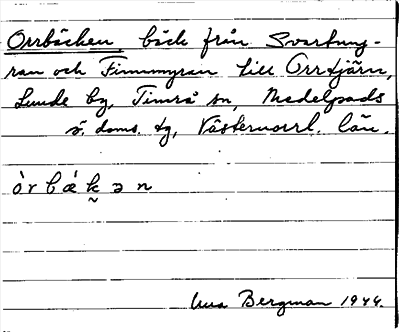 Orrbäcken, bäck från Svartung-
ran och Finnmyran till Orrtjärn,
Lunde by, Timrå sn, Medelpads
ö. doms. tg, Västernorrl. län.
òrbák̬ən
Bergman 1944.